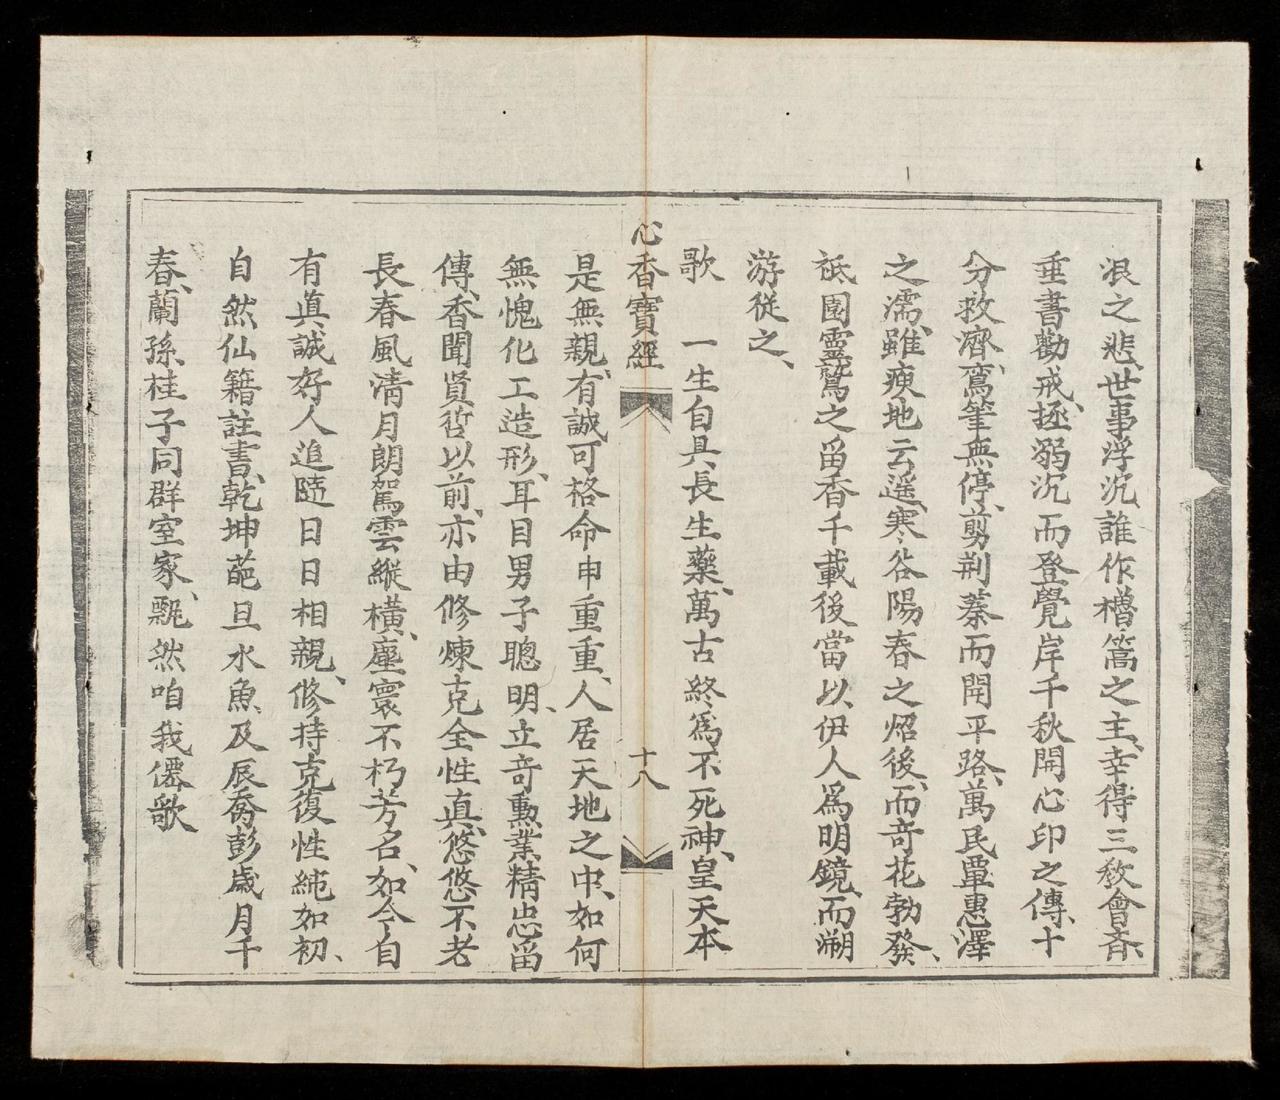 浪之悲、世事浮沉、誰作檣篙之主、幸得三敎會斉、
垂書勸戒、拯溺沉而登覺岸、千秋開心印之傳、十
分救濟、鸞筆無停、剪荆蓁而開平路、萬民覃惠澤
之濡、雖庾地云遥、寒谷陽春之炤後、而竒花勃發、
祗園靈鷲之畱香千載後、當以伊人爲明鏡、而溯
游從之、
歌　一生自具長生藥、萬古終爲不死神、皇天本
心香寶經　十八
是無親、有誠可格命申重重、人居天地之中、如何
無愧化工造形、耳目男子聰明、立竒勳業精忠畱
傳、香聞賢哲以前、亦由修煉克全性真、悠悠不老
長春風淸月朗駕雲縱橫、塵寰不朽芳名、如今自
有真誠好人追隨日日相親、修持克復性純如初、
自然仙籍註書、乾坤葩旦水魚、及辰喬彭歲月千
春、蘭孫桂子同群室家、飄然咱我僊歌